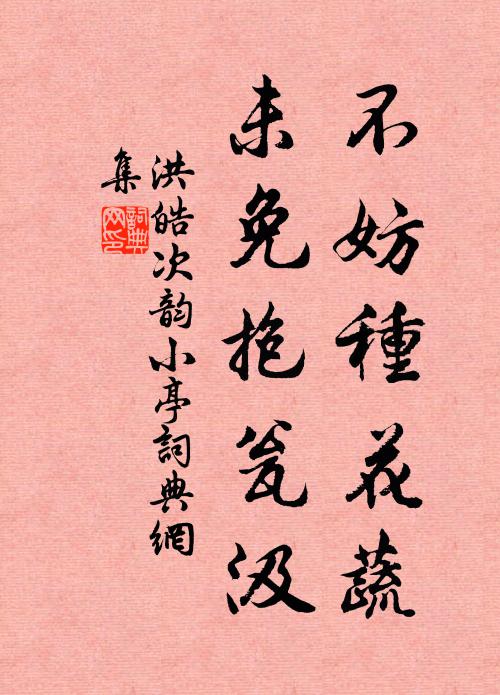 不妨種花蔬
未免抱瓮汲
洪皓次韵小亭詞典網
集
詞典網印